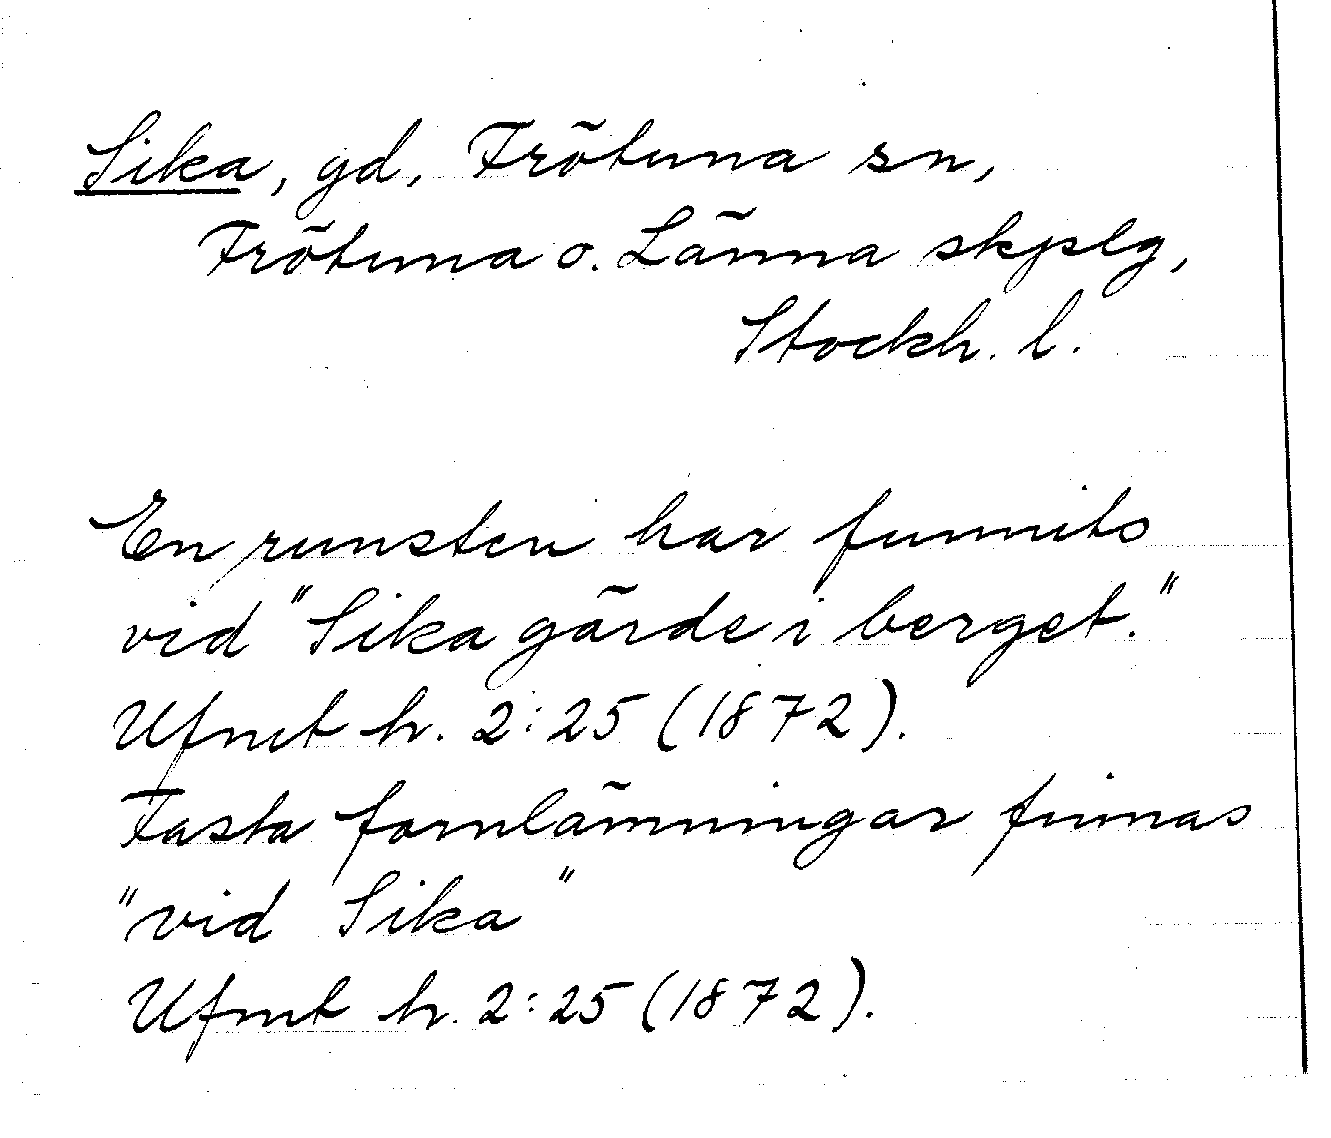 Sika, gd, Frötuna sn,
Frötuna o. Länna skpslg,
Stockh. l.
En runsten har funnits
vid "Sika gärde i berget."
Ufmt h. 2:25 (1872).
Fasta fornlämningar finnas
"vid Sika"
Ufmt h. 2:25 (1872).